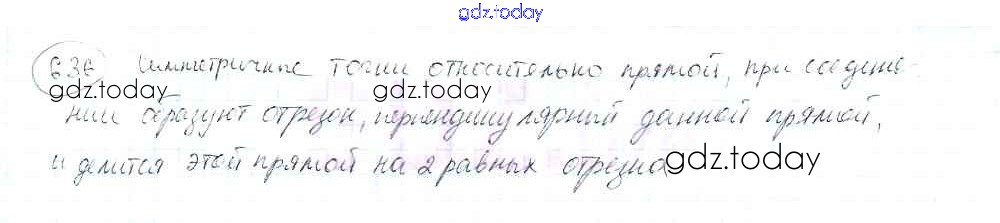 gdz.today
636 Симметричные точки относительно прямой, при соедине-
gdz.today gdz.today
нии образуют отрезок, перпендикулярный данной прямой,
и делится этой прямой на 2 равных отрезка
gdz.today